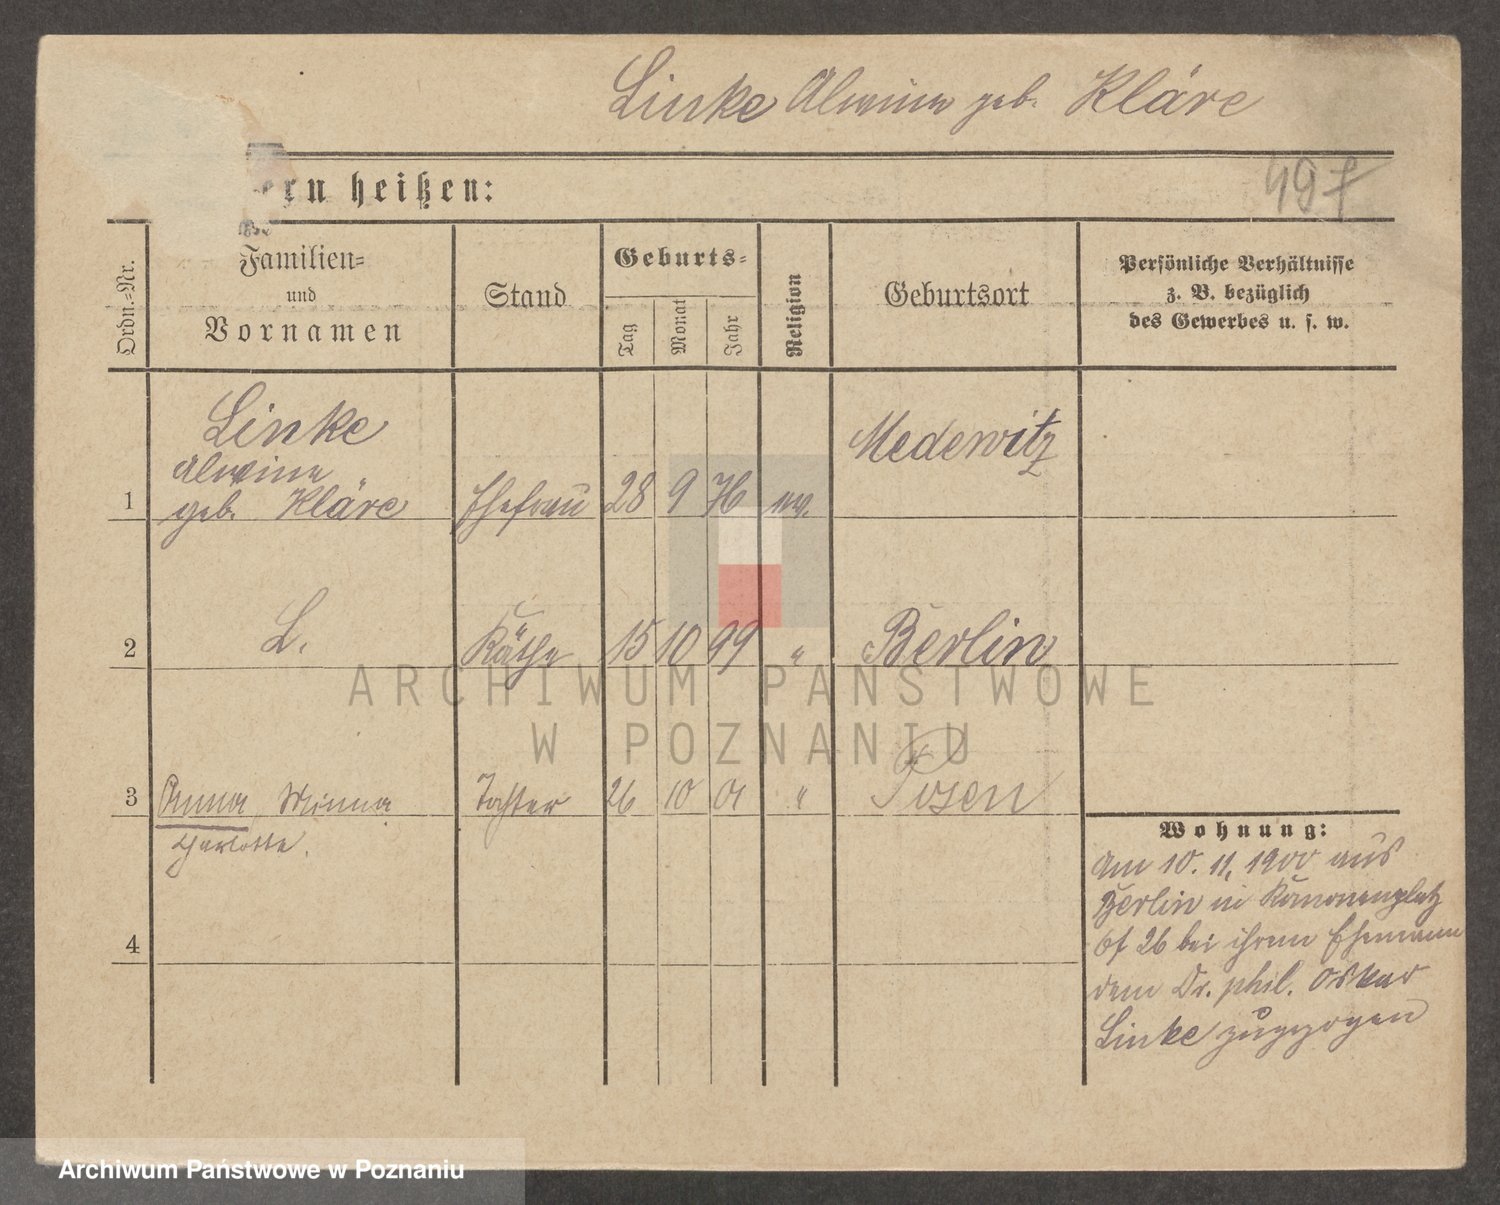 Linke Alwine geb. Kläre
ern heißen:
497
Ordn.-Nr.
Familien-
und
Vornamen
Stand
Geburts-
Tag
Monat
Jahr
Religion
Geburtsort
Persönliche Verhältnisse
z. B. bezüglich
des Gewerbes u. s. w.
Linke
Alwine
1 geb. Kläre Ehefrau 28 9 76 ev. Medewitz
2 L. Käthe 15 10 99 " Berlin
3 Anna, Minna Tochter 26 10 01 " Posen
Charlotte.
4
Wohnung:
Am 10. 11. 1900 aus
Berlin in Kanonenplatz
26 bei ihrem Ehemann
dem Dr. phil. Oskar
Linke zugezogen
ARCHIWUM PAŃSTWOWE
W POZNANIU
Archiwum Państwowe w Poznaniu